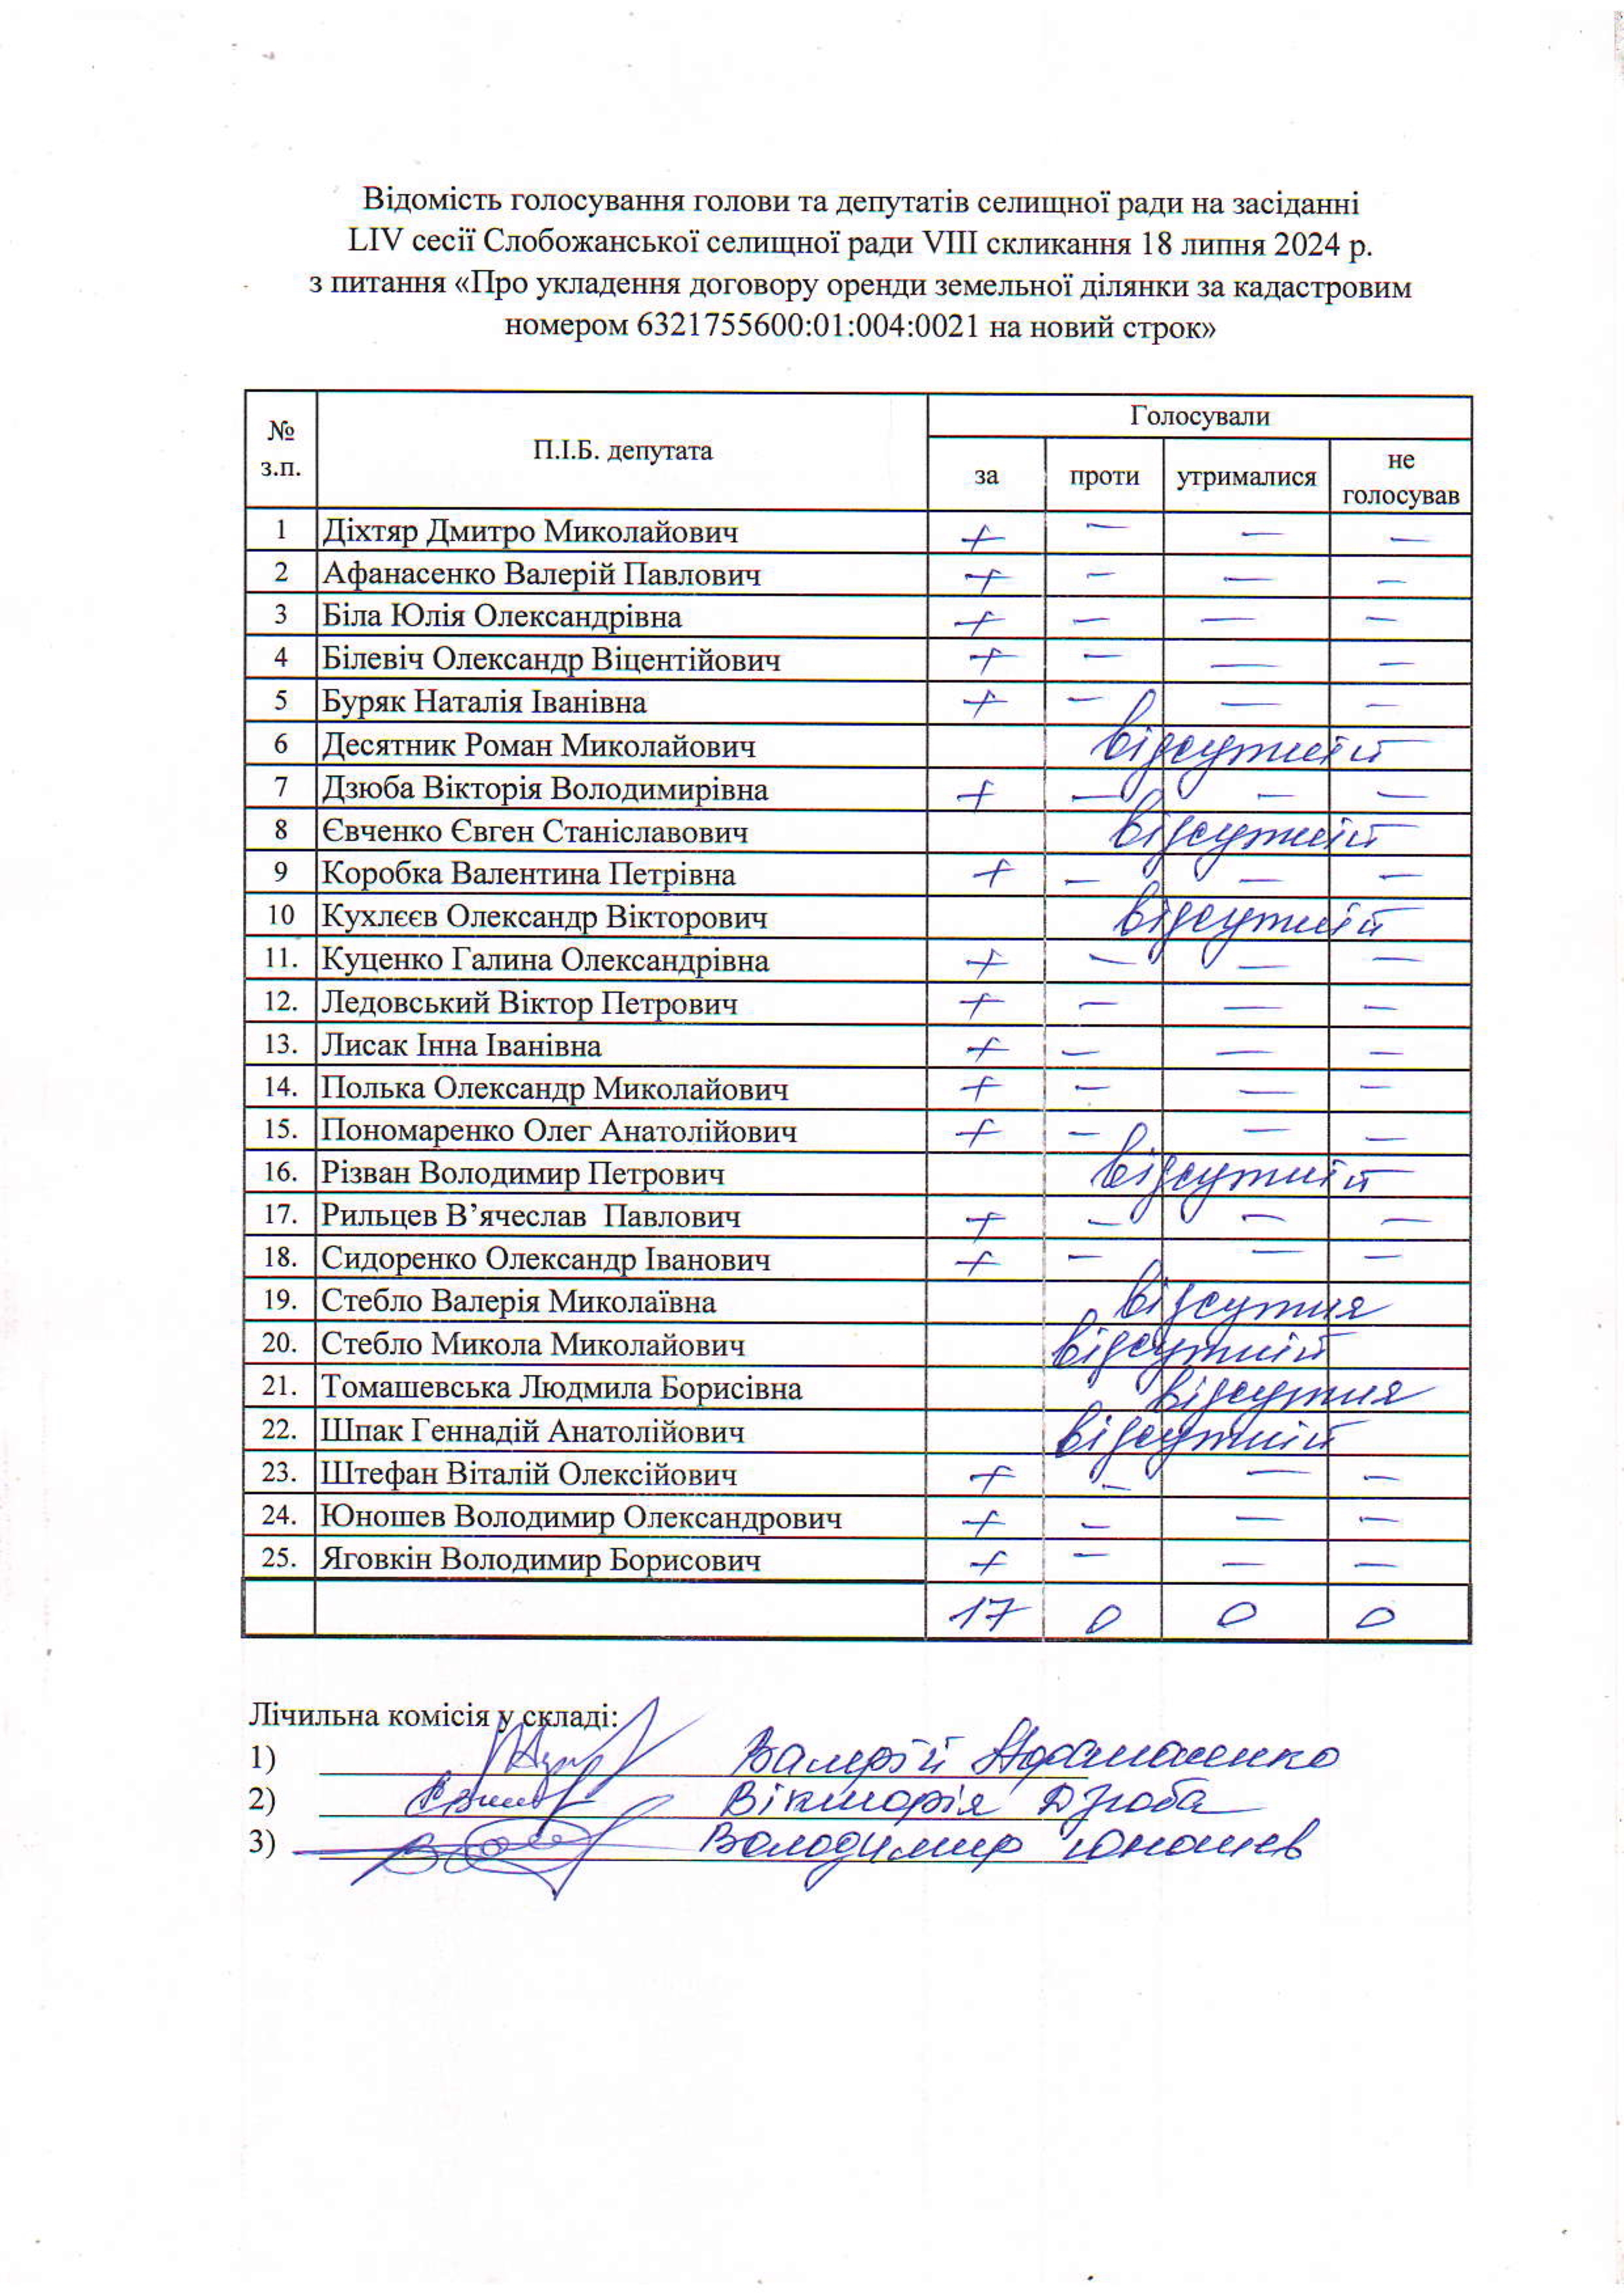 Відомість голосування голови та депутатів селищної ради на засіданні
LIV сесії Слобожанської селищної ради VIII скликання 18 липня 2024 р.
з питання «Про укладення договору оренди земельної ділянки за кадастровим
номером 6321755600:01:004:0021 на новий строк»
№ з.п. П.І.Б. депутата Голосували
за проти утрималися не голосував
1 Діхтяр Дмитро Миколайович + – – –
2 Афанасенко Валерій Павлович + – – –
3 Біла Юлія Олександрівна + – – –
4 Білевіч Олександр Віцентійович + – – –
5 Буряк Наталія Іванівна + – – –
6 Десятник Роман Миколайович відсутній
7 Дзюба Вікторія Володимирівна + – – –
8 Євченко Євген Станіславович відсутній
9 Коробка Валентина Петрівна + – – –
10 Кухлєєв Олександр Вікторович відсутній
11. Куценко Галина Олександрівна + – – –
12. Ледовський Віктор Петрович + – – –
13. Лисак Інна Іванівна + – – –
14. Полька Олександр Миколайович + – – –
15. Пономаренко Олег Анатолійович + – – –
16. Різван Володимир Петрович відсутній
17. Рильцев В’ячеслав Павлович + – – –
18. Сидоренко Олександр Іванович + – – –
19. Стебло Валерія Миколаївна відсутня
20. Стебло Микола Миколайович відсутній
21. Томашевська Людмила Борисівна відсутня
22. Шпак Геннадій Анатолійович відсутній
23. Штефан Віталій Олексійович + – – –
24. Юношев Володимир Олександрович + – – –
25. Яговкін Володимир Борисович + – – –
17 0 0 0
Лічильна комісія у складі:
1) Валерій Афанасенко
2) Вікторія Дзюба
3) Володимир Юношев